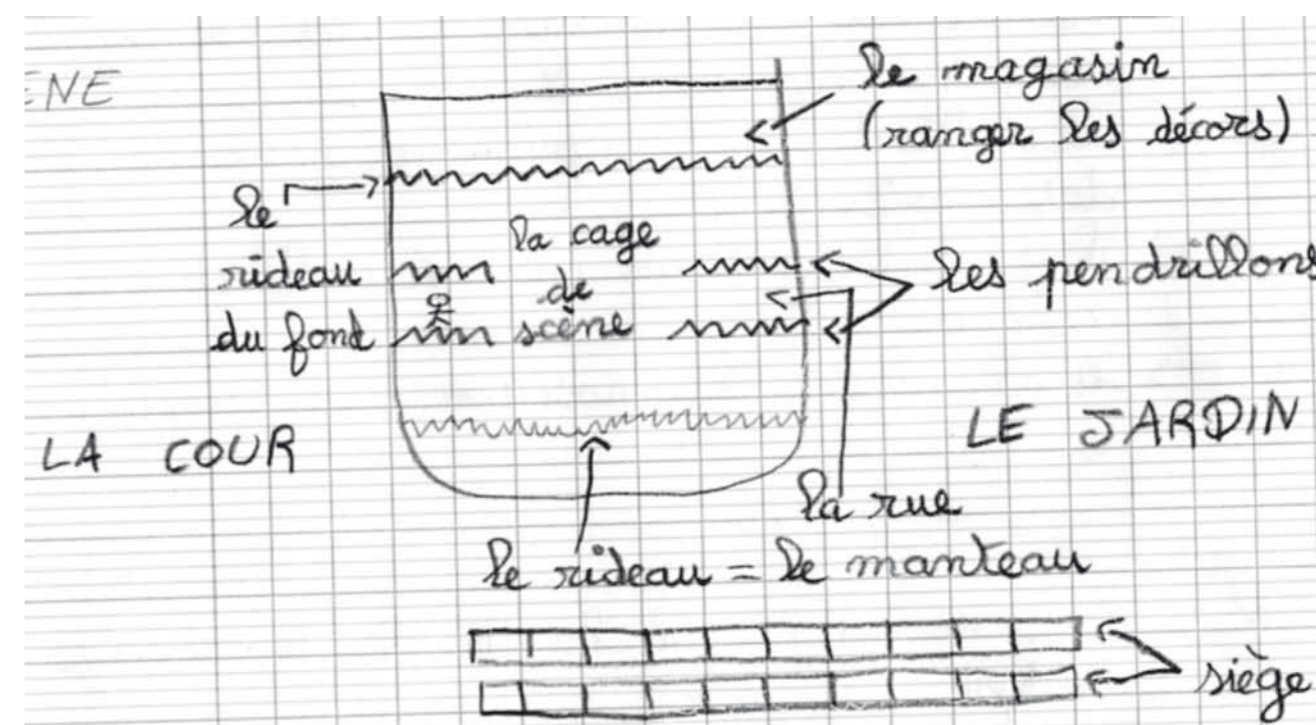 ENE
le magasin
(ranger les décors)
le
rideau
du fond
la cage
de
scène
les pendrillons
LA COUR
LE JARDIN
la rue
le rideau = le manteau
siège